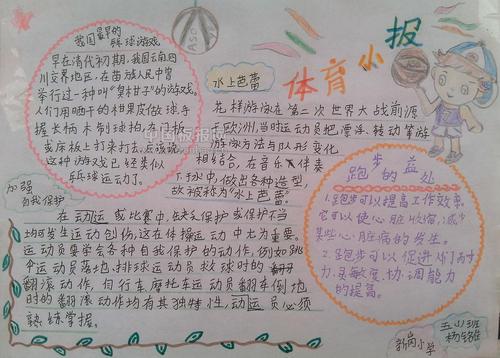 体育小报
我国最早的
乒球游戏
早在清代初期,我国云南四
川交界地区,在苗族人民中曾
举行过一种叫"臭柑子"的游戏,
人们用晒干的柑果皮做球,手
握长柄木制球拍,在地板
或床板上打来打去,应该说,
这种游戏已轻类似
乒球运动了。
水上芭蕾
花样游泳在第二次世界大战前源
于欧洲,当时运动员把漂浮、转动等游
游泳方法与队形变化
相结合,在音乐伴奏
下于水中,做出各种造型,
故被称为"水上芭蕾。
加强
自我保护
在动运或比赛中,缺乏保护或保护不当
均可发生运动创伤,这在体操运动中尤为重要。
运动员要学会各种自我保护的动作,例如跳
伞运动员落地、排球运动员救球时的
翻滚动作,自行车、摩托车运动员翻车倒地
时的翻滚动作均有其独特性,动运员必须
熟练掌握。
跑步的益处
1.跑步可以提高工作效率。
它可以使心脏收缩,减少
某些心脏病的发生。
2.跑步可以促进人们耐
力、灵敏度、协调能力
的提高。
五(1)班
新岗小学